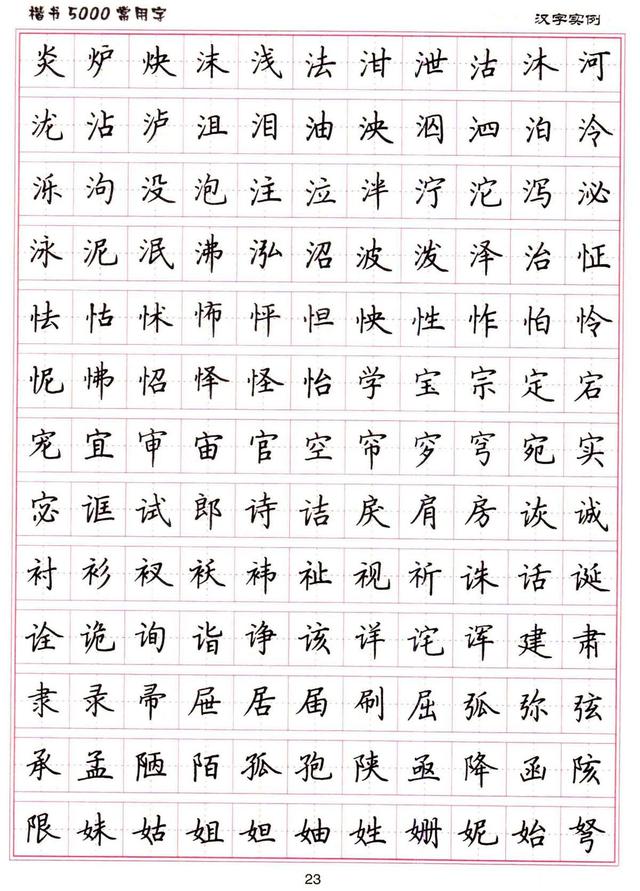 楷书5000常用字 汉字实例
炎 炉 炔 沫 浅 法 泔 泄 沽 沐 河
泷 沾 泸 沮 泪 油 泱 泅 泗 泊 泠
泺 泃 没 泡 注 泣 泮 泞 沱 泻 泌
泳 泥 泯 沸 泓 沼 波 泼 泽 治 怔
怯 怙 怵 怖 怦 怛 怏 性 怍 怕 怜
怩 怫 怊 怿 怪 怡 学 宝 宗 定 宕
宠 宜 审 宙 官 空 帘 穸 穹 宛 实
宓 诓 试 郎 诗 诘 戾 肩 房 诙 诚
衬 衫 衩 袄 祎 祉 视 祈 诛 话 诞
诠 诡 询 诣 诤 该 详 诧 诨 建 肃
隶 录 帚 屉 居 届 刷 屈 弧 弥 弦
承 孟 陋 陌 孤 孢 陕 亟 降 函 陔
限 妹 姑 姐 妲 妯 姓 姗 妮 始 弩
23